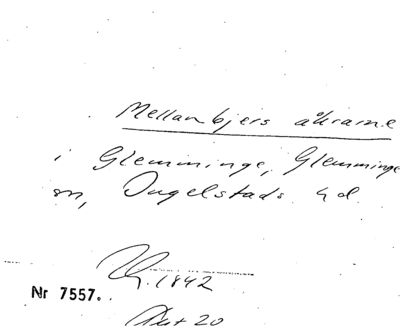 Mellanbjers åkrarne
i Glemminge, Glemminge
sn, Ingelstads hd.
1842
Nr 7557.
20